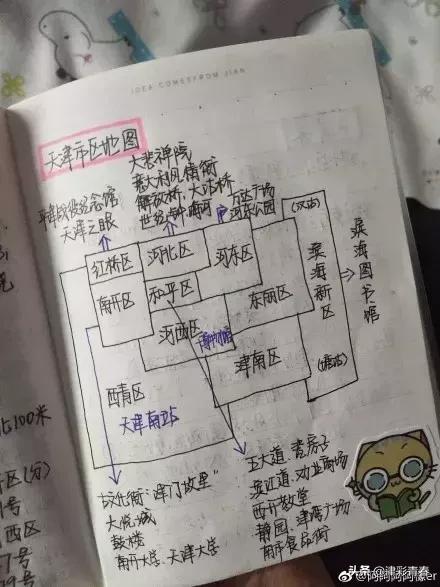 IDEA COMES FROM JIAN
天津市区地图
大悲禅院
意大利风情街
平津战役纪念馆
解放桥、大沽桥
天津之眼
世纪钟 海河
万达广场
河东公园
红桥区
河北区
河东区
(汉沽)
滨海新区
(塘沽)
滨海图书馆
南开区
和平区
东丽区
河西区
津南区
西青区
天津南站
古文化街:"津门故里"
大悦城
鼓楼
南开大学、天津大学
五大道:瓷房子
滨江道:劝业商场
西开教堂
静园、津湾广场
南市食品街
100米
区(分)
号
西区
7号
9号
头条 @津彩青春